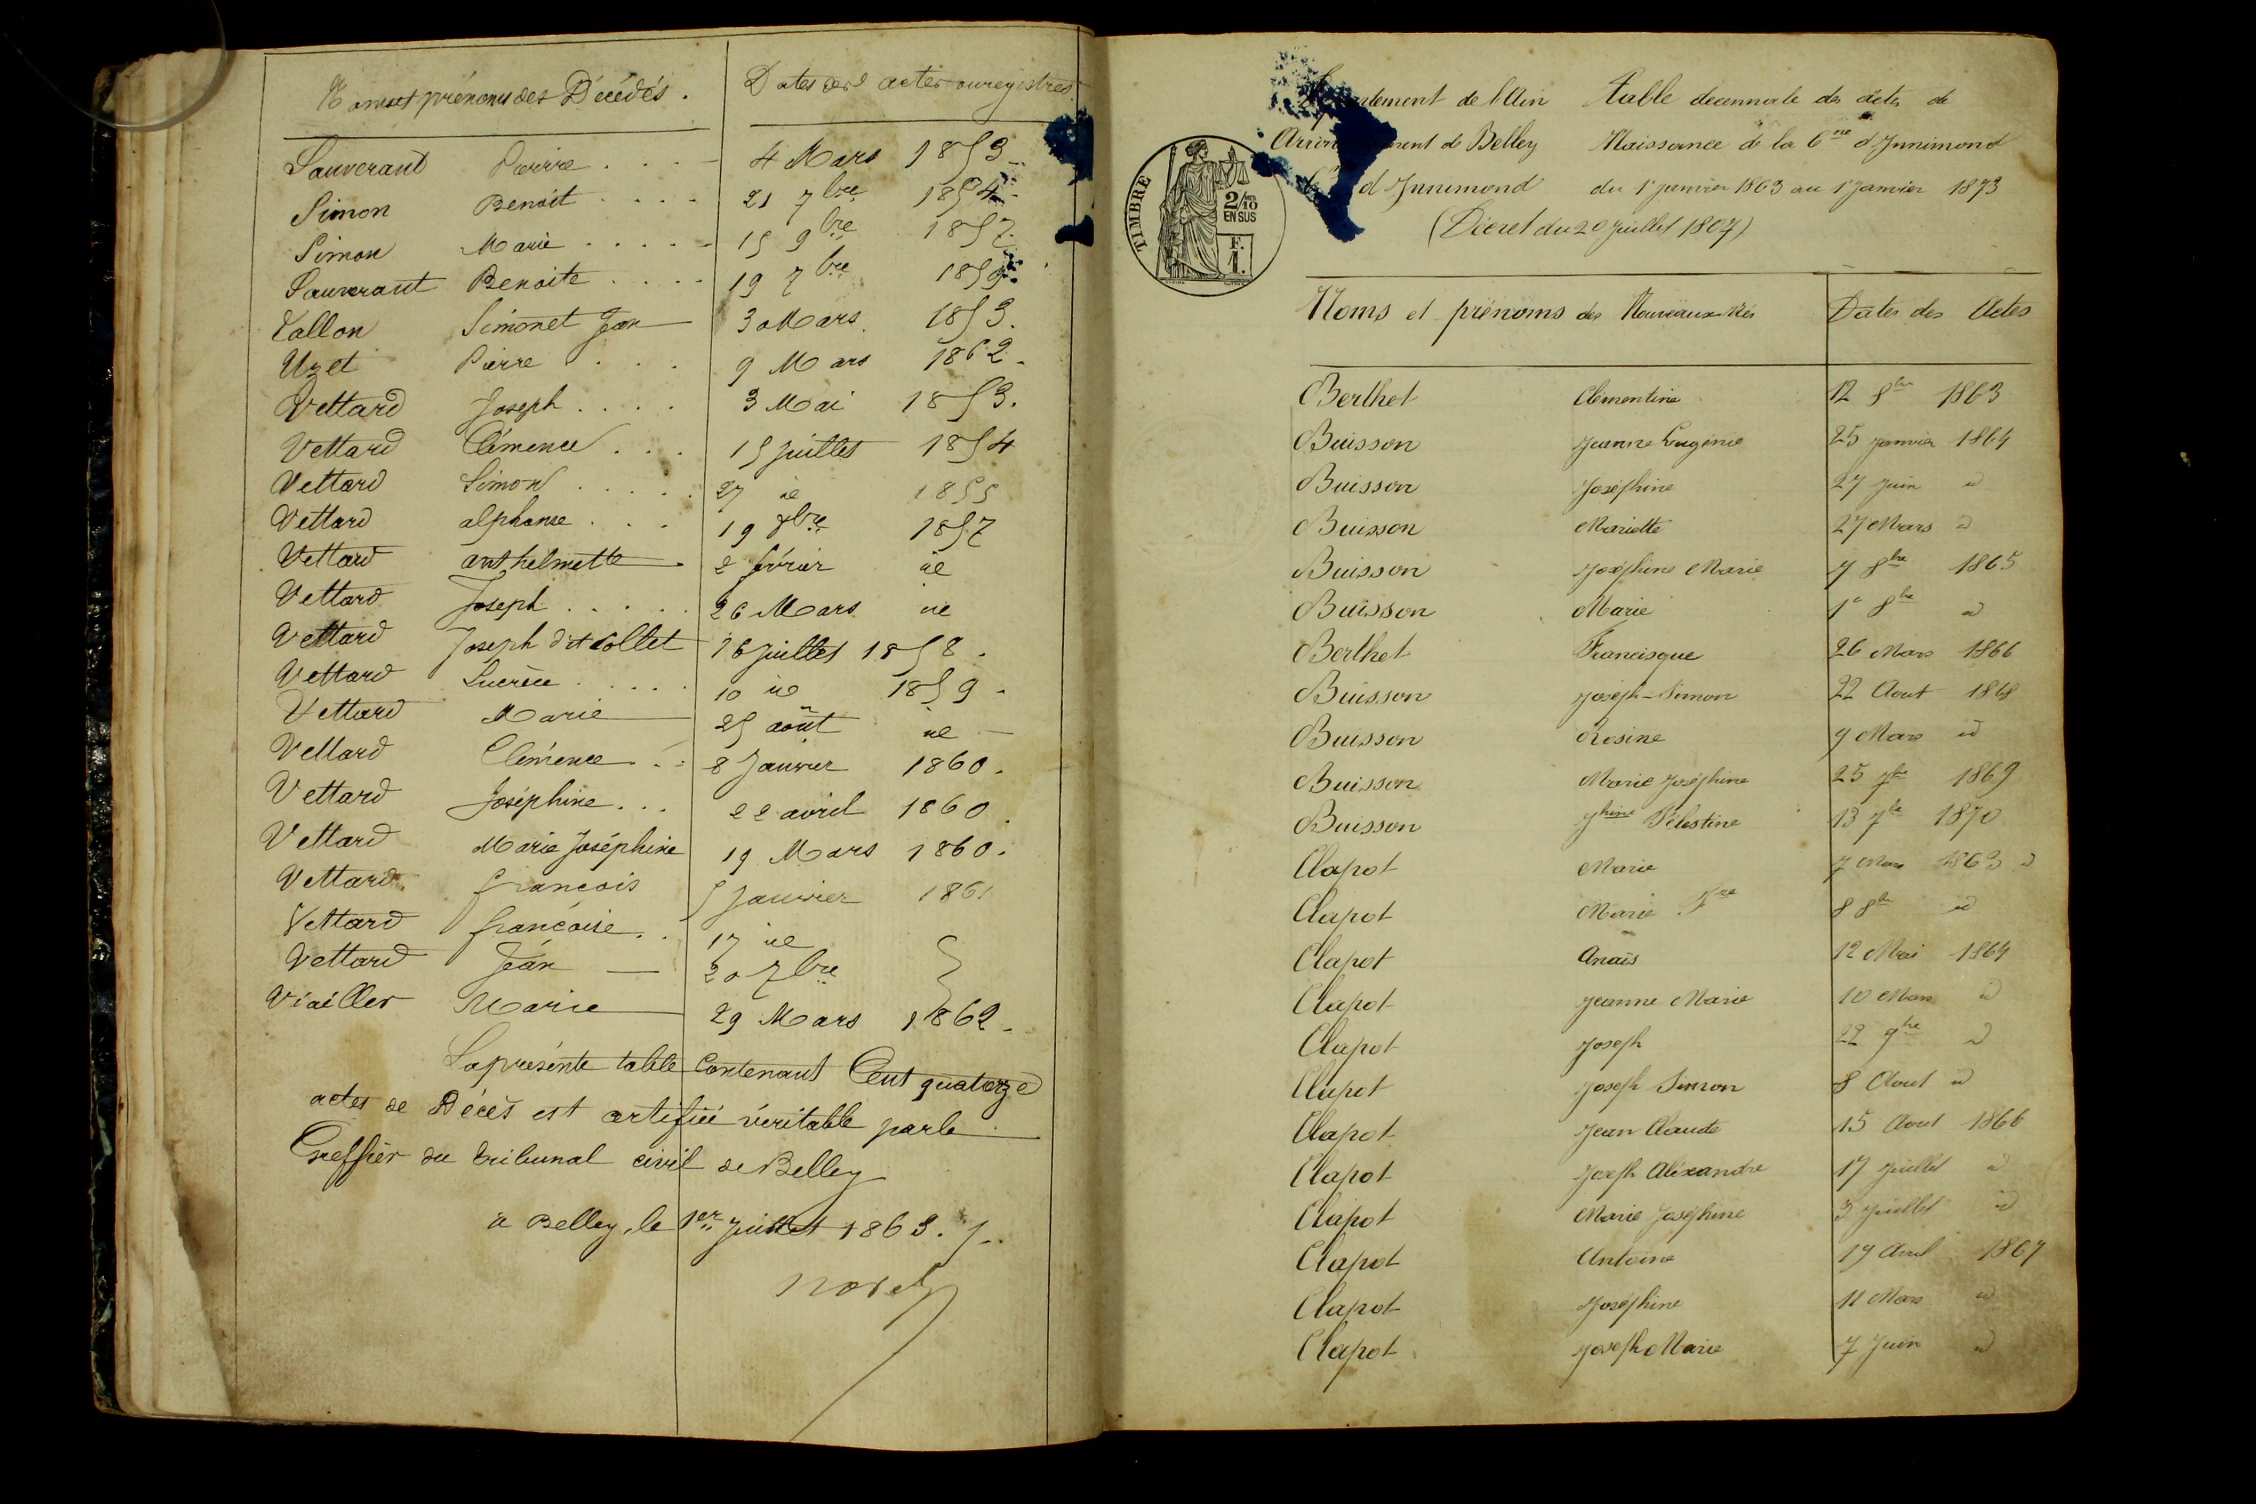 Noms et prénoms des Décédés. Dates des actes aux registres
Sauverant Pierre . . . - 4 Mars 1853 -
Simon Benoit . . . . 21 7bre 1854 -
Simon Marie . . . . - 15 9bre 1857.
Sauverant Benoite . . . . 19 7bre 1859.
Vallon Simonet Jean 30 Mars 1853.
Uzet Pierre . . . 9 Mars 1862.
Vettard Joseph . . . . 3 Mai 1853.
Vettard Clémence . . . 15 juillet 1854
Vettard Simon . . . . . 27 id 1855
Vettard alphonse . . . 19 8bre 1857
Vettard anthelmette . 2 février id
Vettard Joseph . . . . . 26 Mars id
Vettard Joseph dit Collet 16 juillet 1858.
Vettard Lucrèce . . . . . 10 id 1859.
Vettard Marie 25 août id -
Vettard Clémence . . 8 Janvier 1860.
Vettard Joséphine . . . 22 avril 1860.
Vettard Marie Joséphine 19 Mars 1860.
Vettard francois 5 Janvier 1861
Vettard françoise . . 17 id
Vettard Jean - 20 7bre
Viailler Marie 29 Mars 1862.
La présente table contenant Cent quatorze
actes de Décès est certifiée véritable par le
Greffier du tribunal civil de Belley
à Belley, le 1er Juillet 1863.
Département de l'Ain Table decennale des actes de
Arrondissement de Belley Naissance de la Cne d'Innimond
d'Innimond du 1er janvier 1863 au 1er Janvier 1873
(Décret du 20 juillet 1807)
TIMBRE
2/10 EN SUS
F. 1.
Noms et prénoms des Nouveaux-Nés Dates des Actes
Berthet Clementine 12 8bre 1863
Buisson Jeanne Eugénie 25 janvier 1864
Buisson Joséphine 27 juin id
Buisson Mariette 27 Mars id
Buisson Joséphine Marie 7 8bre 1865
Buisson Marie 1er 8bre id
Berthet Francisque 26 Mars 1866
Buisson Joseph-Simon 22 Aout 1868
Buisson Rosine 9 Mars id
Buisson Marie Joséphine 25 7bre 1869
Buisson Jhine Célestine 13 7bre 1870
Clapot Marie 7 Mars 1863
Clapot Marie Fse 8 8bre id
Clapot Anaïs 12 Mai 1864
Clapot Jeanne Marie 10 Mars id
Clapot Joseph 22 9bre id
Clapot Joseph Simon 8 Aout id
Clapot Jean Claude 15 Aout 1866
Clapot Joseph Alexandre 17 juillet id
Clapot Marie Joséphine 3 juillet id
Clapot Antoine 19 Avril 1867
Clapot Joséphine 11 Mars id
Clapot Joseph Marie 7 Juin id